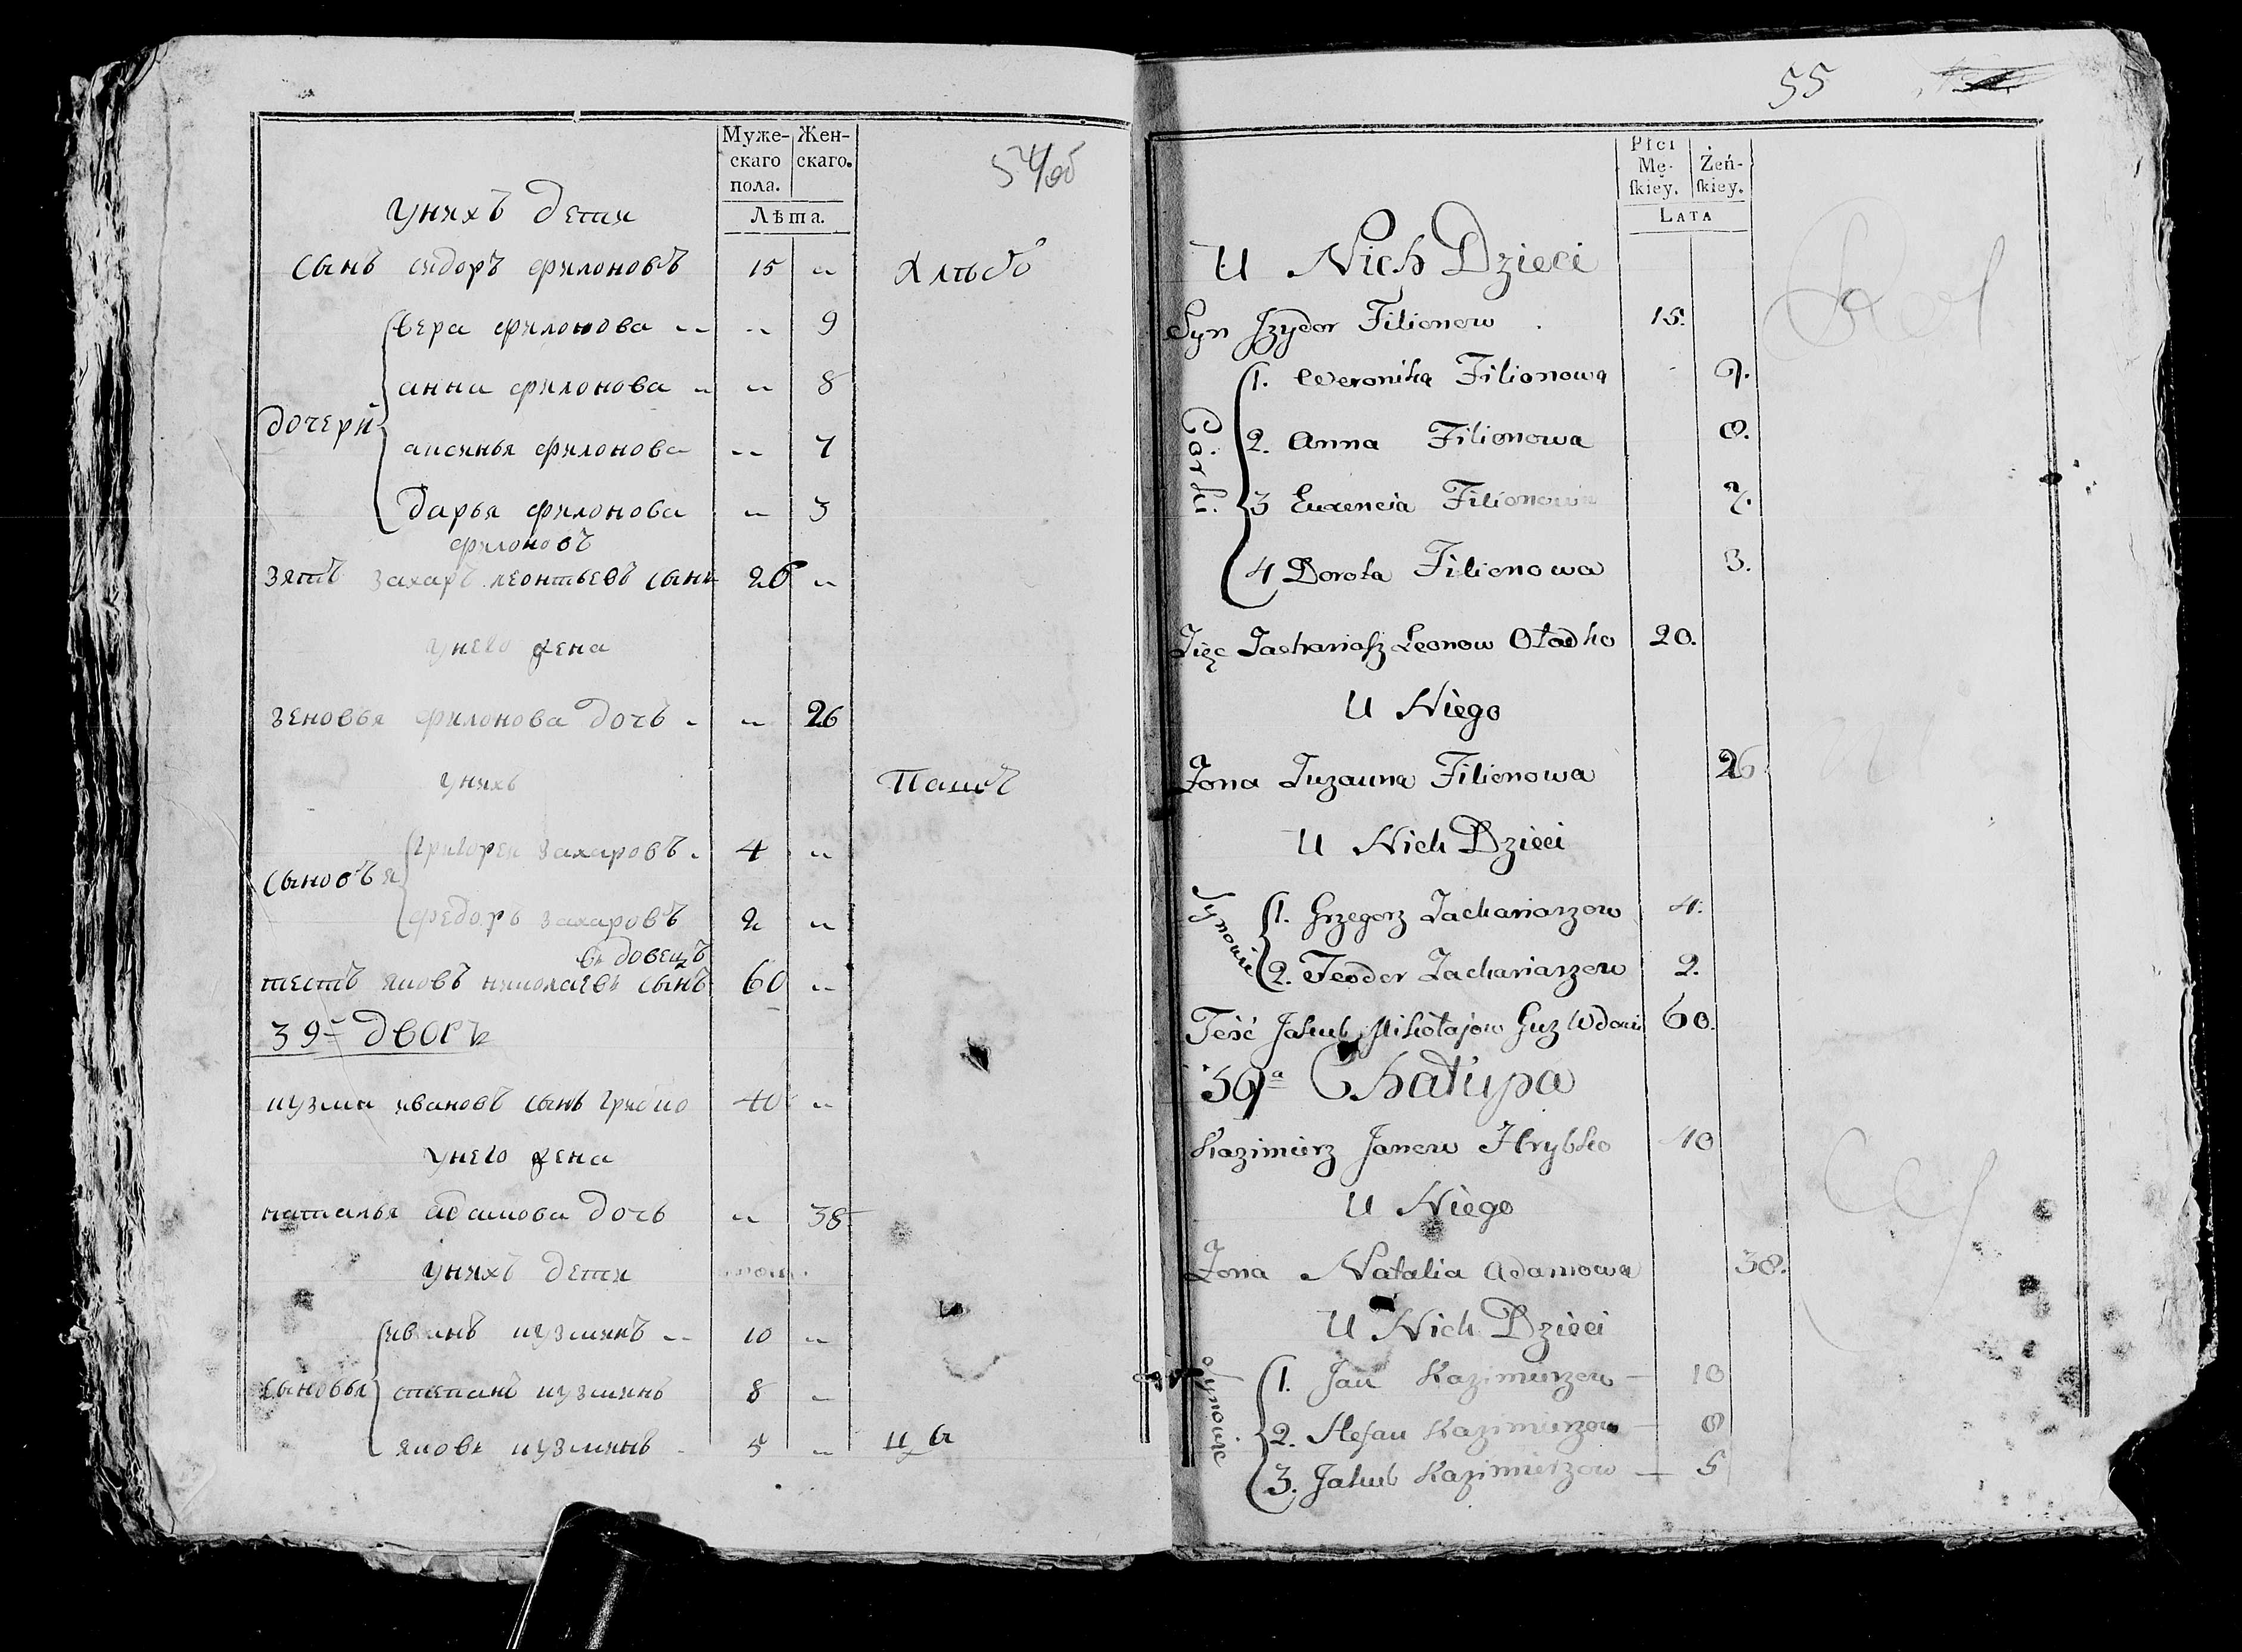 Муже- Жен-
скаго скаго.
пола.
Лѣта.
54/об
унихъ дети
сынъ сидоръ филоновъ 15 „
вера филонова „ „ 9
анна филонова „ „ 8
дочери
аксинья филонова „ 7
дарья филонова „ 3
филоновъ
зять захаръ леонтьевъ сынъ 26 „
унего жена
зеновья филонова дочь „ „ 26
унихъ
григореи захаровъ 4 „
сыновья
федоръ захаровъ 2 „
вдовецъ
тесть яковъ николаевъ сынъ 60 „
39-дворъ
кузма ивановъ сынъ грибко 40 „
унего жена
наталья адамова дочь „ 38
унихъ дети
иванъ кузминъ „ 10 „
сыновья степанъ кузминъ 8 „
яковъ кузминъ 5 „
55
Płci
Mę- Żeń-
ſkiey. ſkiey.
LATA
U Nich Dzieci
Syn Jzydor Filionow 15.
1. Weronika Filionowa 9.
Córki.
2. Anna Filionowa 8.
3 Euxencia Filionowa 7.
4 Dorota Filionowa 3.
Zięc Zachariaſz Leonow Oładko 20.
U Niego
Żona Zuzanna Filionowa 26
U Nich Dzieci
Synowie
1. Grzegorz Zachariarzow 4.
2. Teodor Zachariarzow 2.
Teść Jakub Mikołajow Guz Wdowi 60.
39a Chałupa
Kazimierz Janow Hrybko 40
U Niego
Żona Natalia Adamowa 38.
U Nich Dzieci
Synowie
1. Jan Kazimierzow — 10
2. Stefan Kazimierzow — 8
3. Jakub Kazimierzow — 5